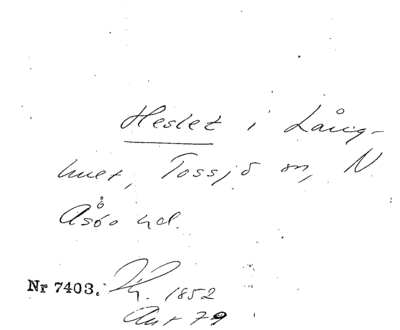 Heslet i Lång-
huet, Tossjö sn, N
Åsbo hd.
Nr 7403. 1852
Ant 79